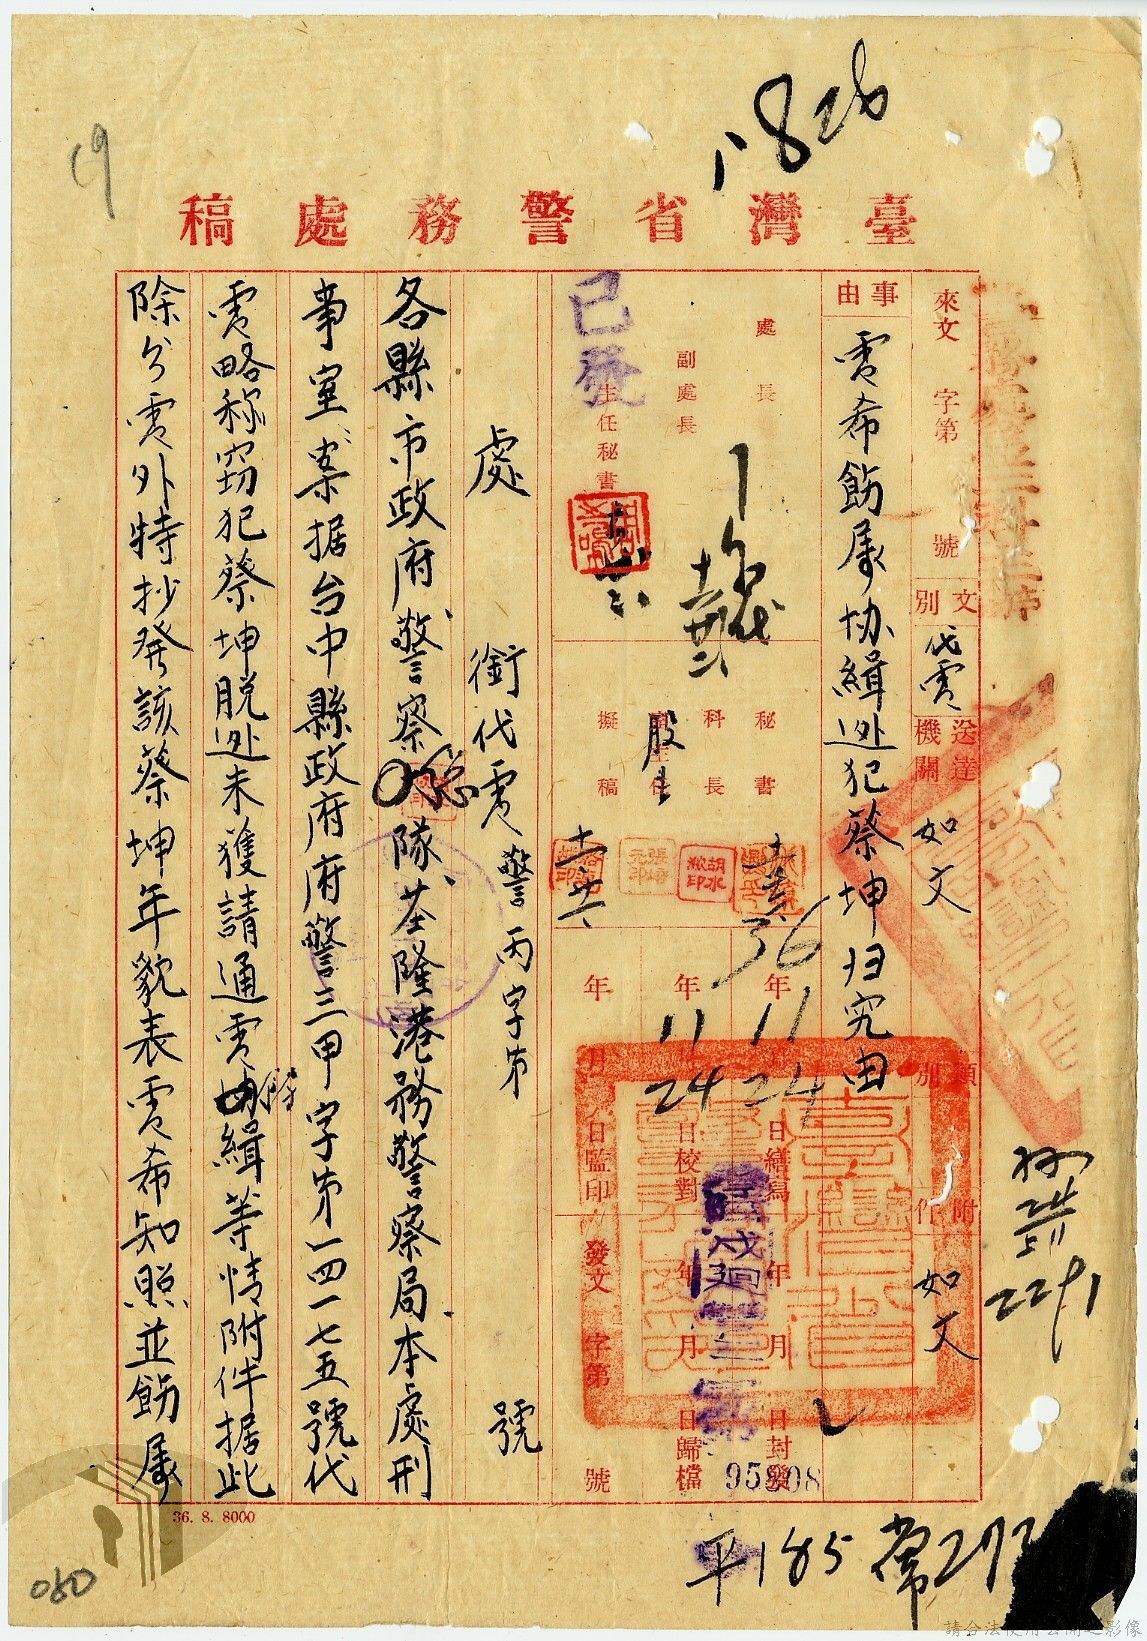 1826
19
臺灣省警務處稿
來文 字第 號
文別 代電
送達機關 如文
類別
附件 如文
事由 電希飭屬协緝逃犯蔡坤归究由
處長
副處長
主任秘書
已發
秘書
科長
股主任
擬稿
36年11月24日繕寫
年11月24日校對
年月日監印
年月日封發
年月日歸檔
發文 字第 號
95808
處銜代電 警丙字第 號
各縣市政府、警察总隊、基隆港務警察局、本處刑
事室、案据台中縣政府府警三甲字第一四一七五號代
電略称窃犯蔡坤脱逃未獲請通電協緝等情附件据此
除分電外特抄發該蔡坤年貌表電希知照並飭屬
36. 8. 8000
平185 常273
060
請合法使用公開之影像